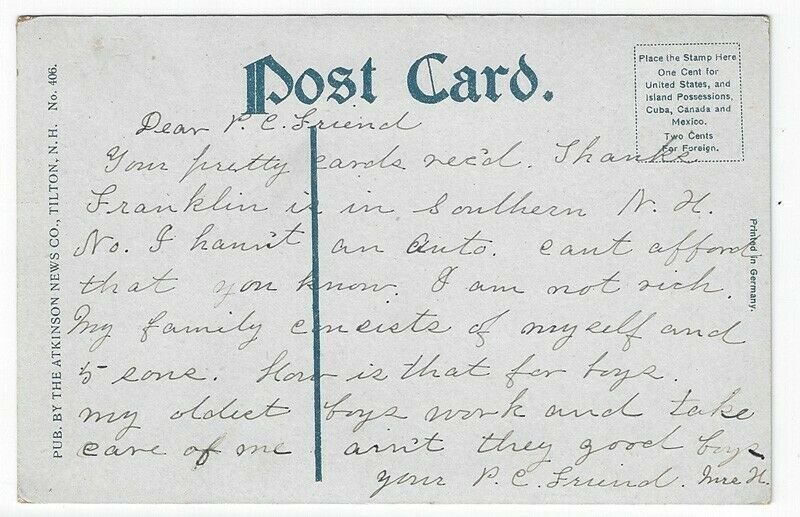 Post Card.
Place the Stamp Here
One Cent for
United States, and
Island Possessions,
Cuba, Canada and
Mexico.
Two Cents
For Foreign.
Dear P. C. Friend
Your pretty cards rec'd. Thanks
Franklin is in Southern N. H.
No. I havn't an auto. cant afford
that you know. I am not rich.
My family consists of myself and
5 sons. How is that for boys.
my oldest boys work and take
care of me ain't they good boys
your P. C. Friend. Mrs H.
PUB. BY THE ATKINSON NEWS CO., TILTON, N. H. No. 406.
Printed in Germany.